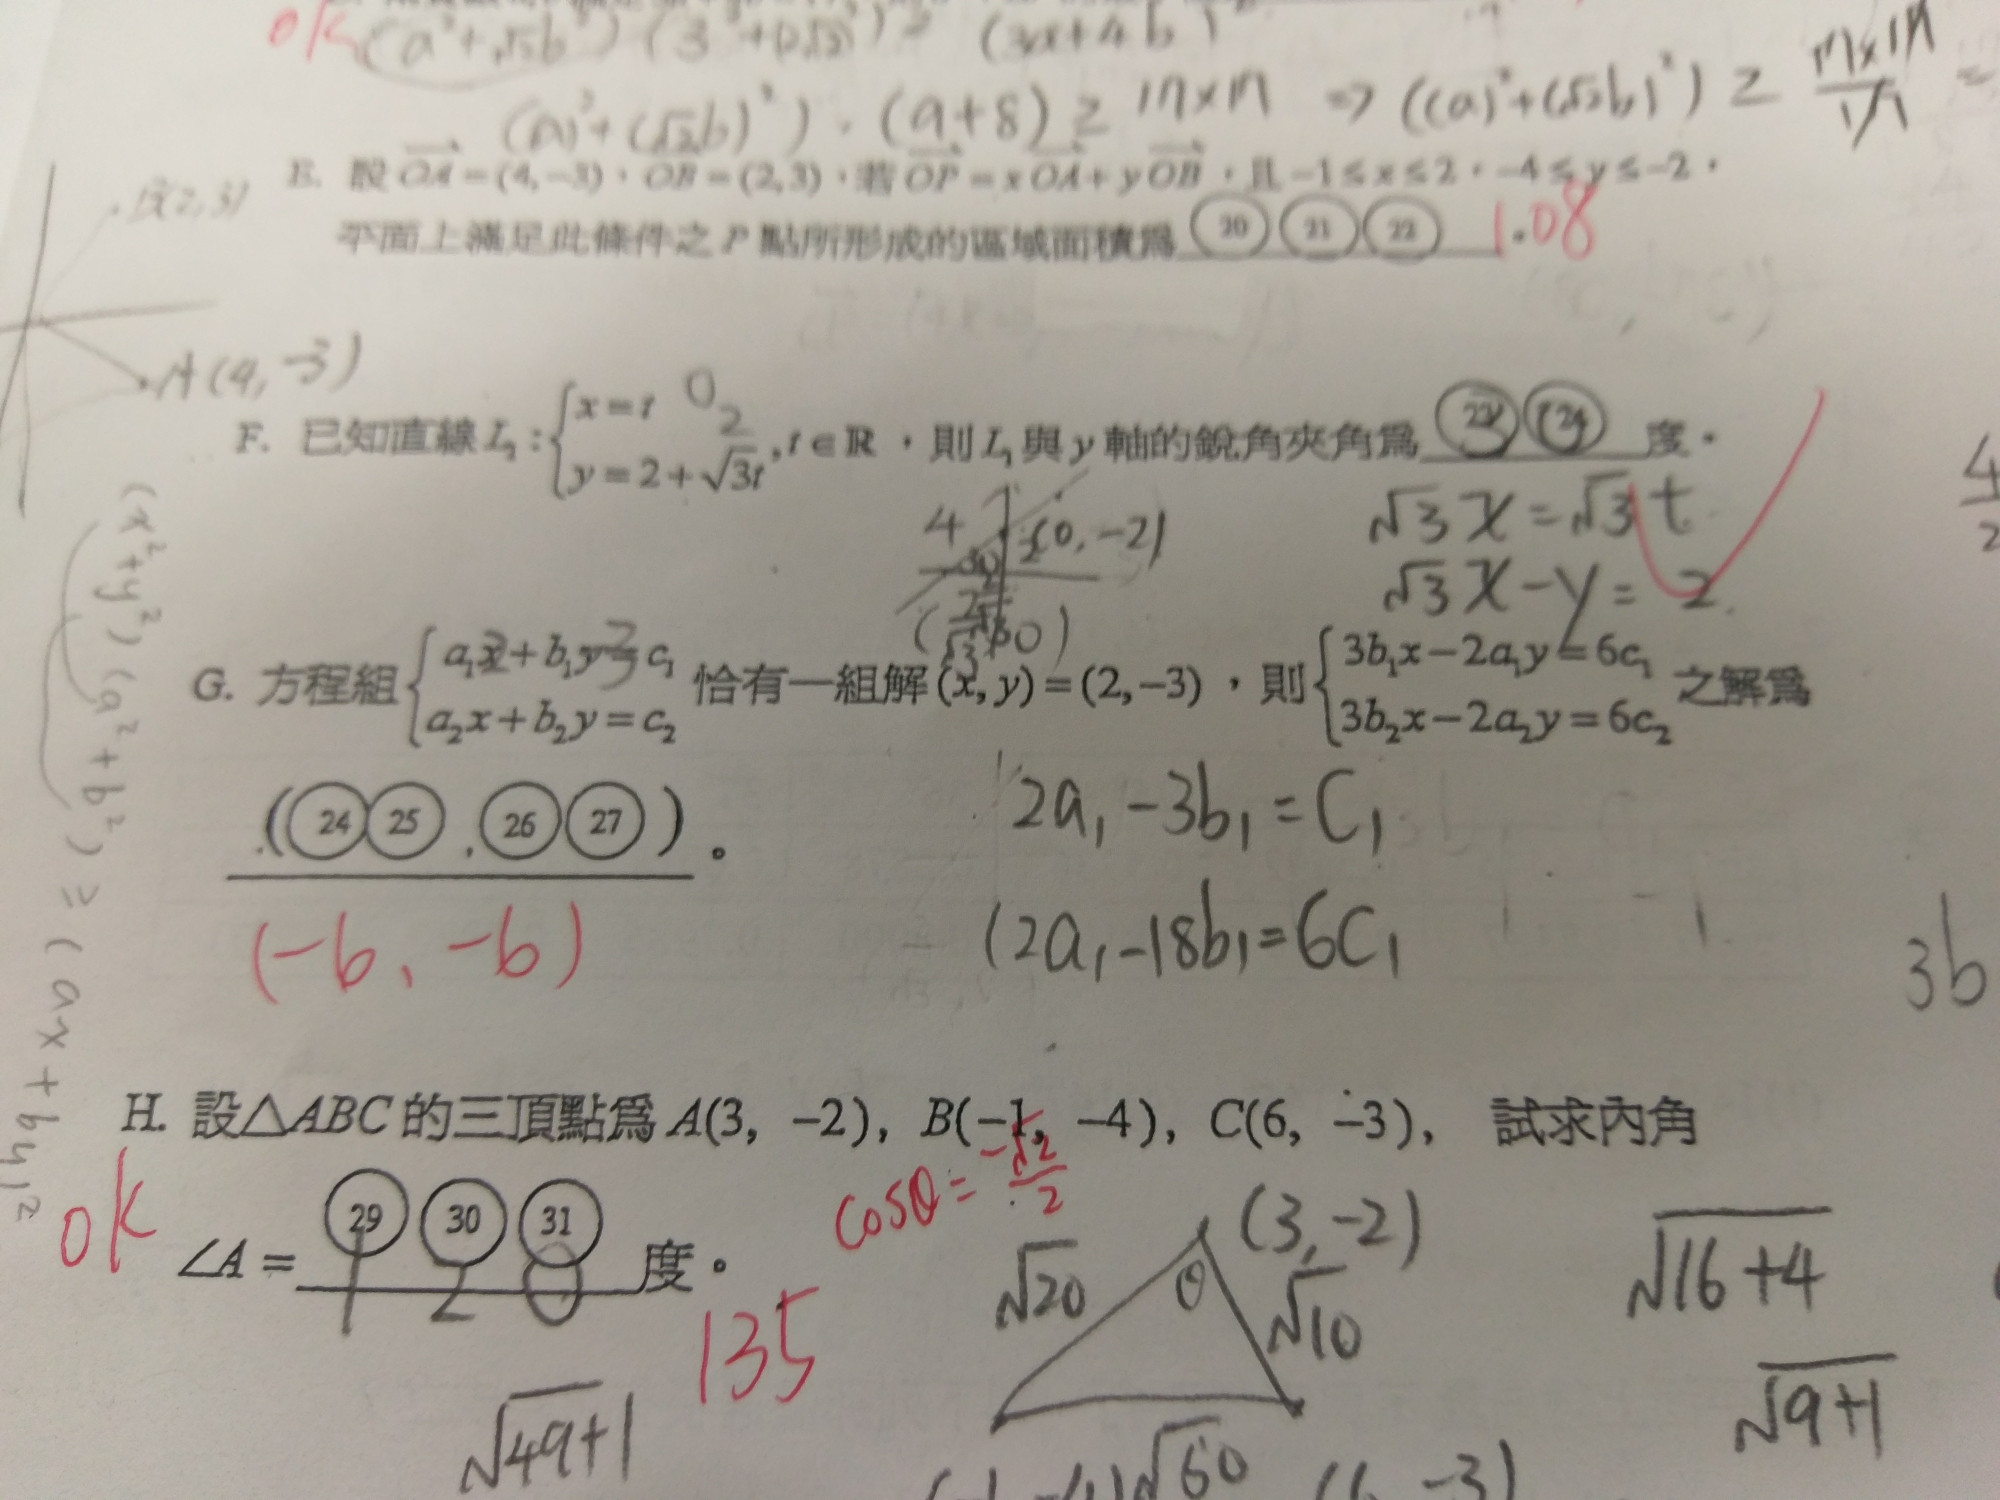 ok (a²+√2b²)(3²+(2√2)²) ≥ (3a+4b)²
(a)²+(√2b)²)·(9+8) ≥ 17×17 ⇒ ((a)²+(√2b)²) ≥ 17×17/17 =
B(2,3)
E. 設 OA=(4,-3),OB=(2,3),若 OP=xOA+yOB,且 -1≤x≤2,-4≤y≤-2,
平面上滿足此條件之 P 點所形成的區域面積為 20 21 22 108
A(4,-3)
F. 已知直線 L₁:{x=t 0 2
y=2+√3t, t∈ℝ,則 L₁ 與 y 軸的銳角夾角為 23 24 度。
√3x=√3t
4 (0,-2)
√3x-y=2
(x²+y²)(a²+b²) ≥ (ax+by)²
G. 方程組 {a₁x+b₁y=c₁
a₂x+b₂y=c₂ 恰有一組解 (x,y)=(2,-3),則 {3b₁x-2a₁y=6c₁
3b₂x-2a₂y=6c₂ 之解為
(24 25, 26 27)。
2a₁-3b₁=C₁
(-6,-6)
12a₁-18b₁=6C₁
3b
H. 設△ABC 的三頂點為 A(3, -2), B(-1, -4), C(6, -3), 試求內角
ok ∠A= 29 30 31 度。
1 2 0
135
cosθ=-√2/2
(3,-2)
√20 θ √10
√16+4
√9+1
√49+1
√60